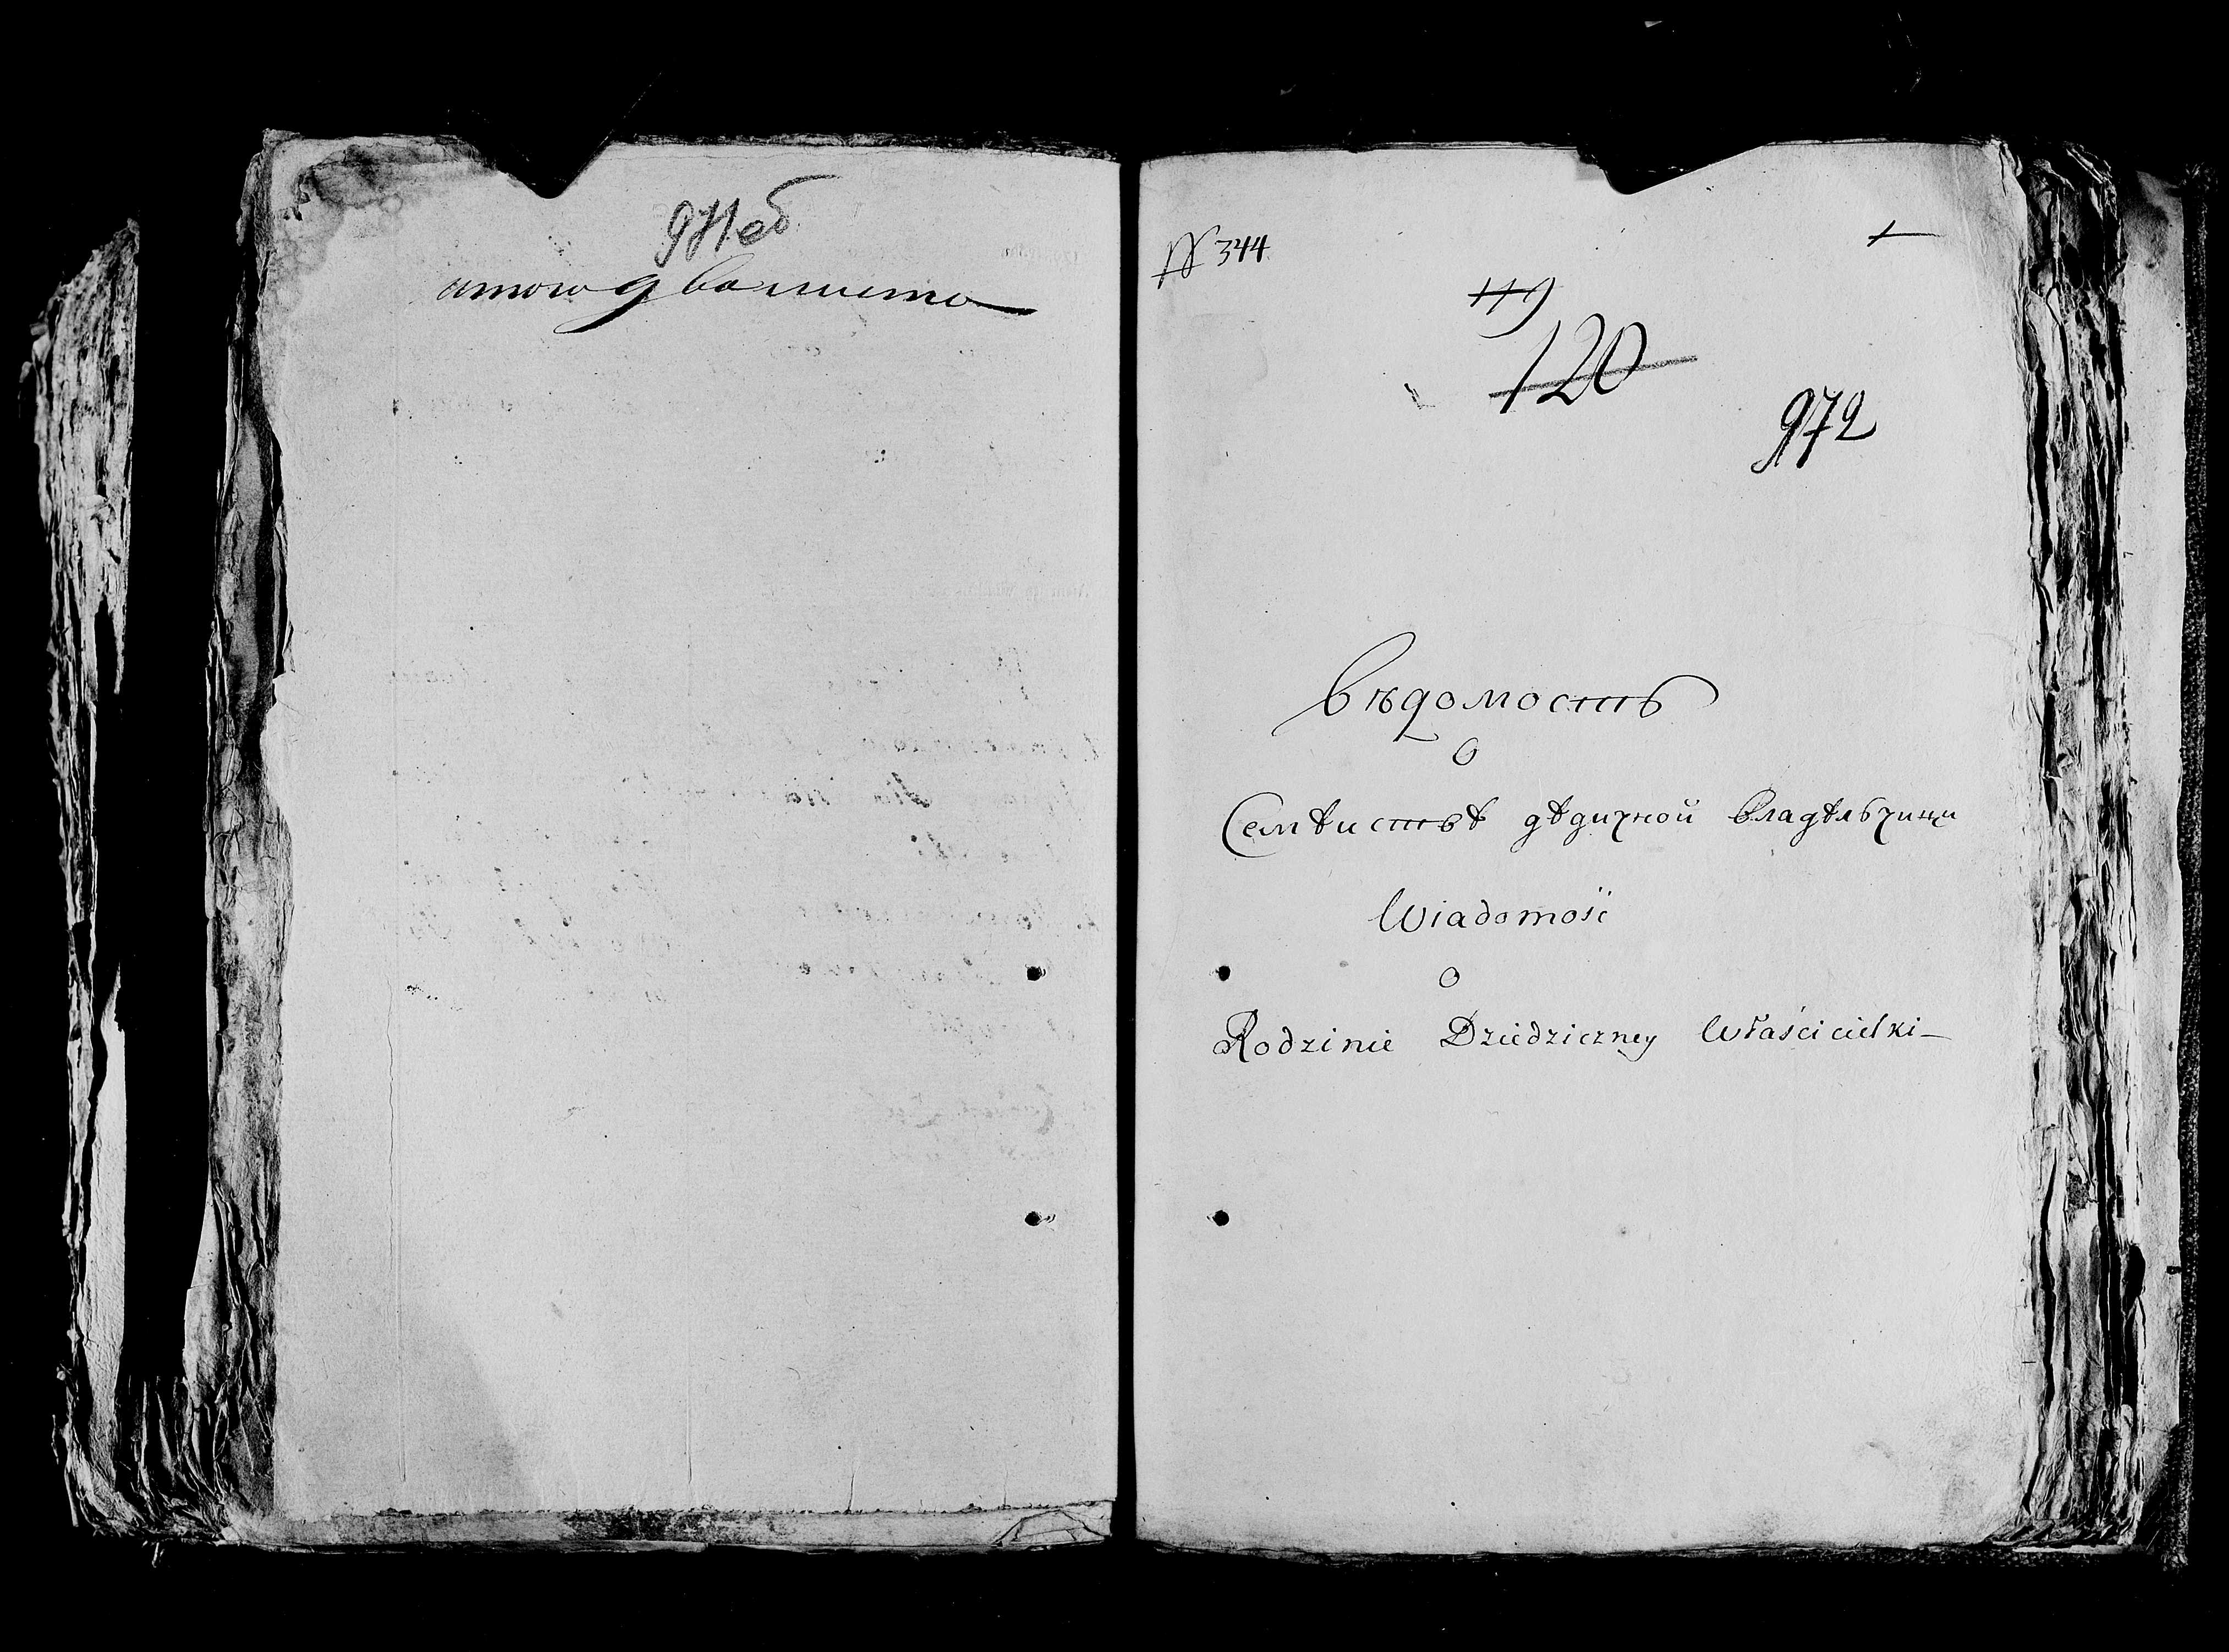 971 об
итого два листа
№ 344
1
119
120
972
Вѣдомость
О
Семѣиствѣ дѣдичной владѣльчици
Wiadomość
O
Rodzinie Dziedziczney Właścicielki —